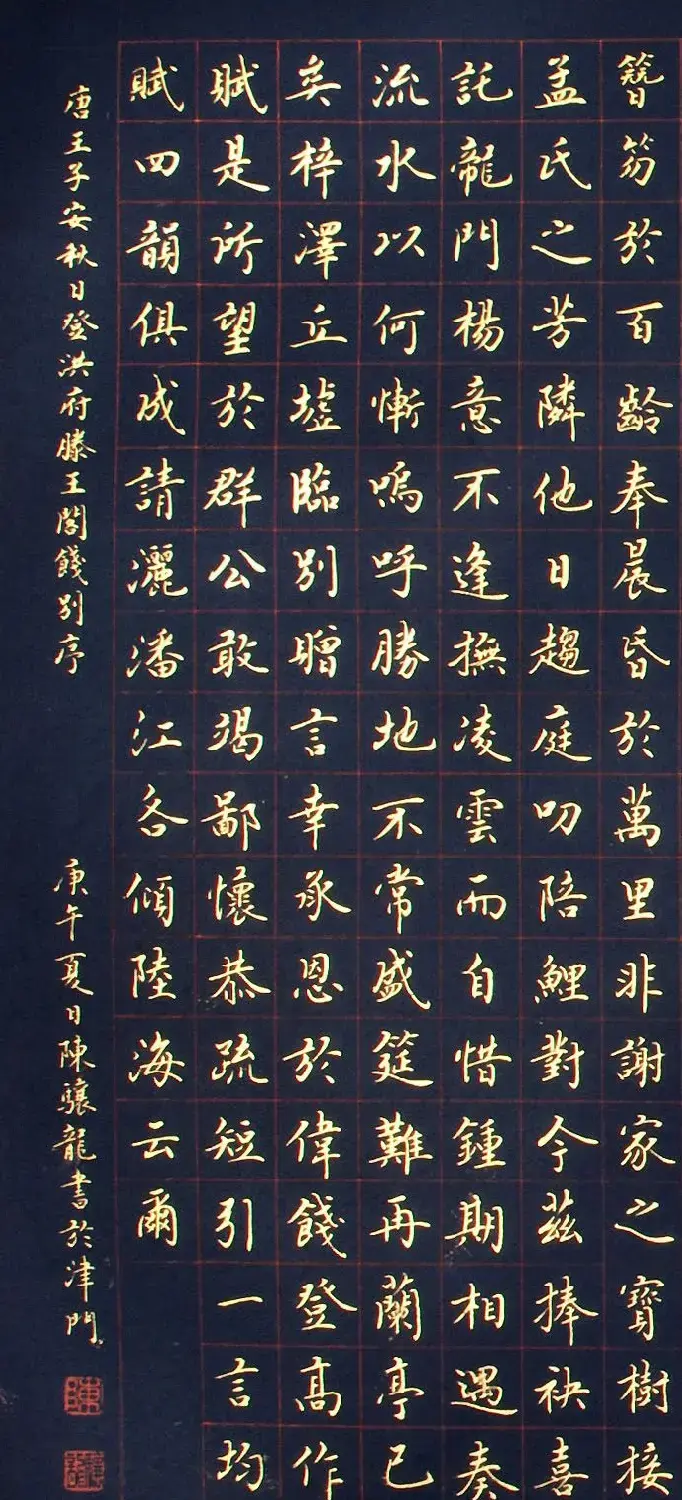 簪笏於百齡奉晨昏於萬里非謝家之寶樹接
孟氏之芳隣他日趨庭叨陪鯉對今茲捧袂喜
託龍門楊意不逢撫凌雲而自惜鍾期相遇奏
流水以何慚嗚呼勝地不常盛筵難再蘭亭已
矣梓澤丘墟臨別贈言幸承恩於偉餞登高作
賦是所望於群公敢竭鄙懷恭疏短引一言均
賦四韻俱成請灑潘江各傾陸海云爾
唐王子安秋日登洪府滕王閣餞別序
庚午夏日陳驤龍書於津門